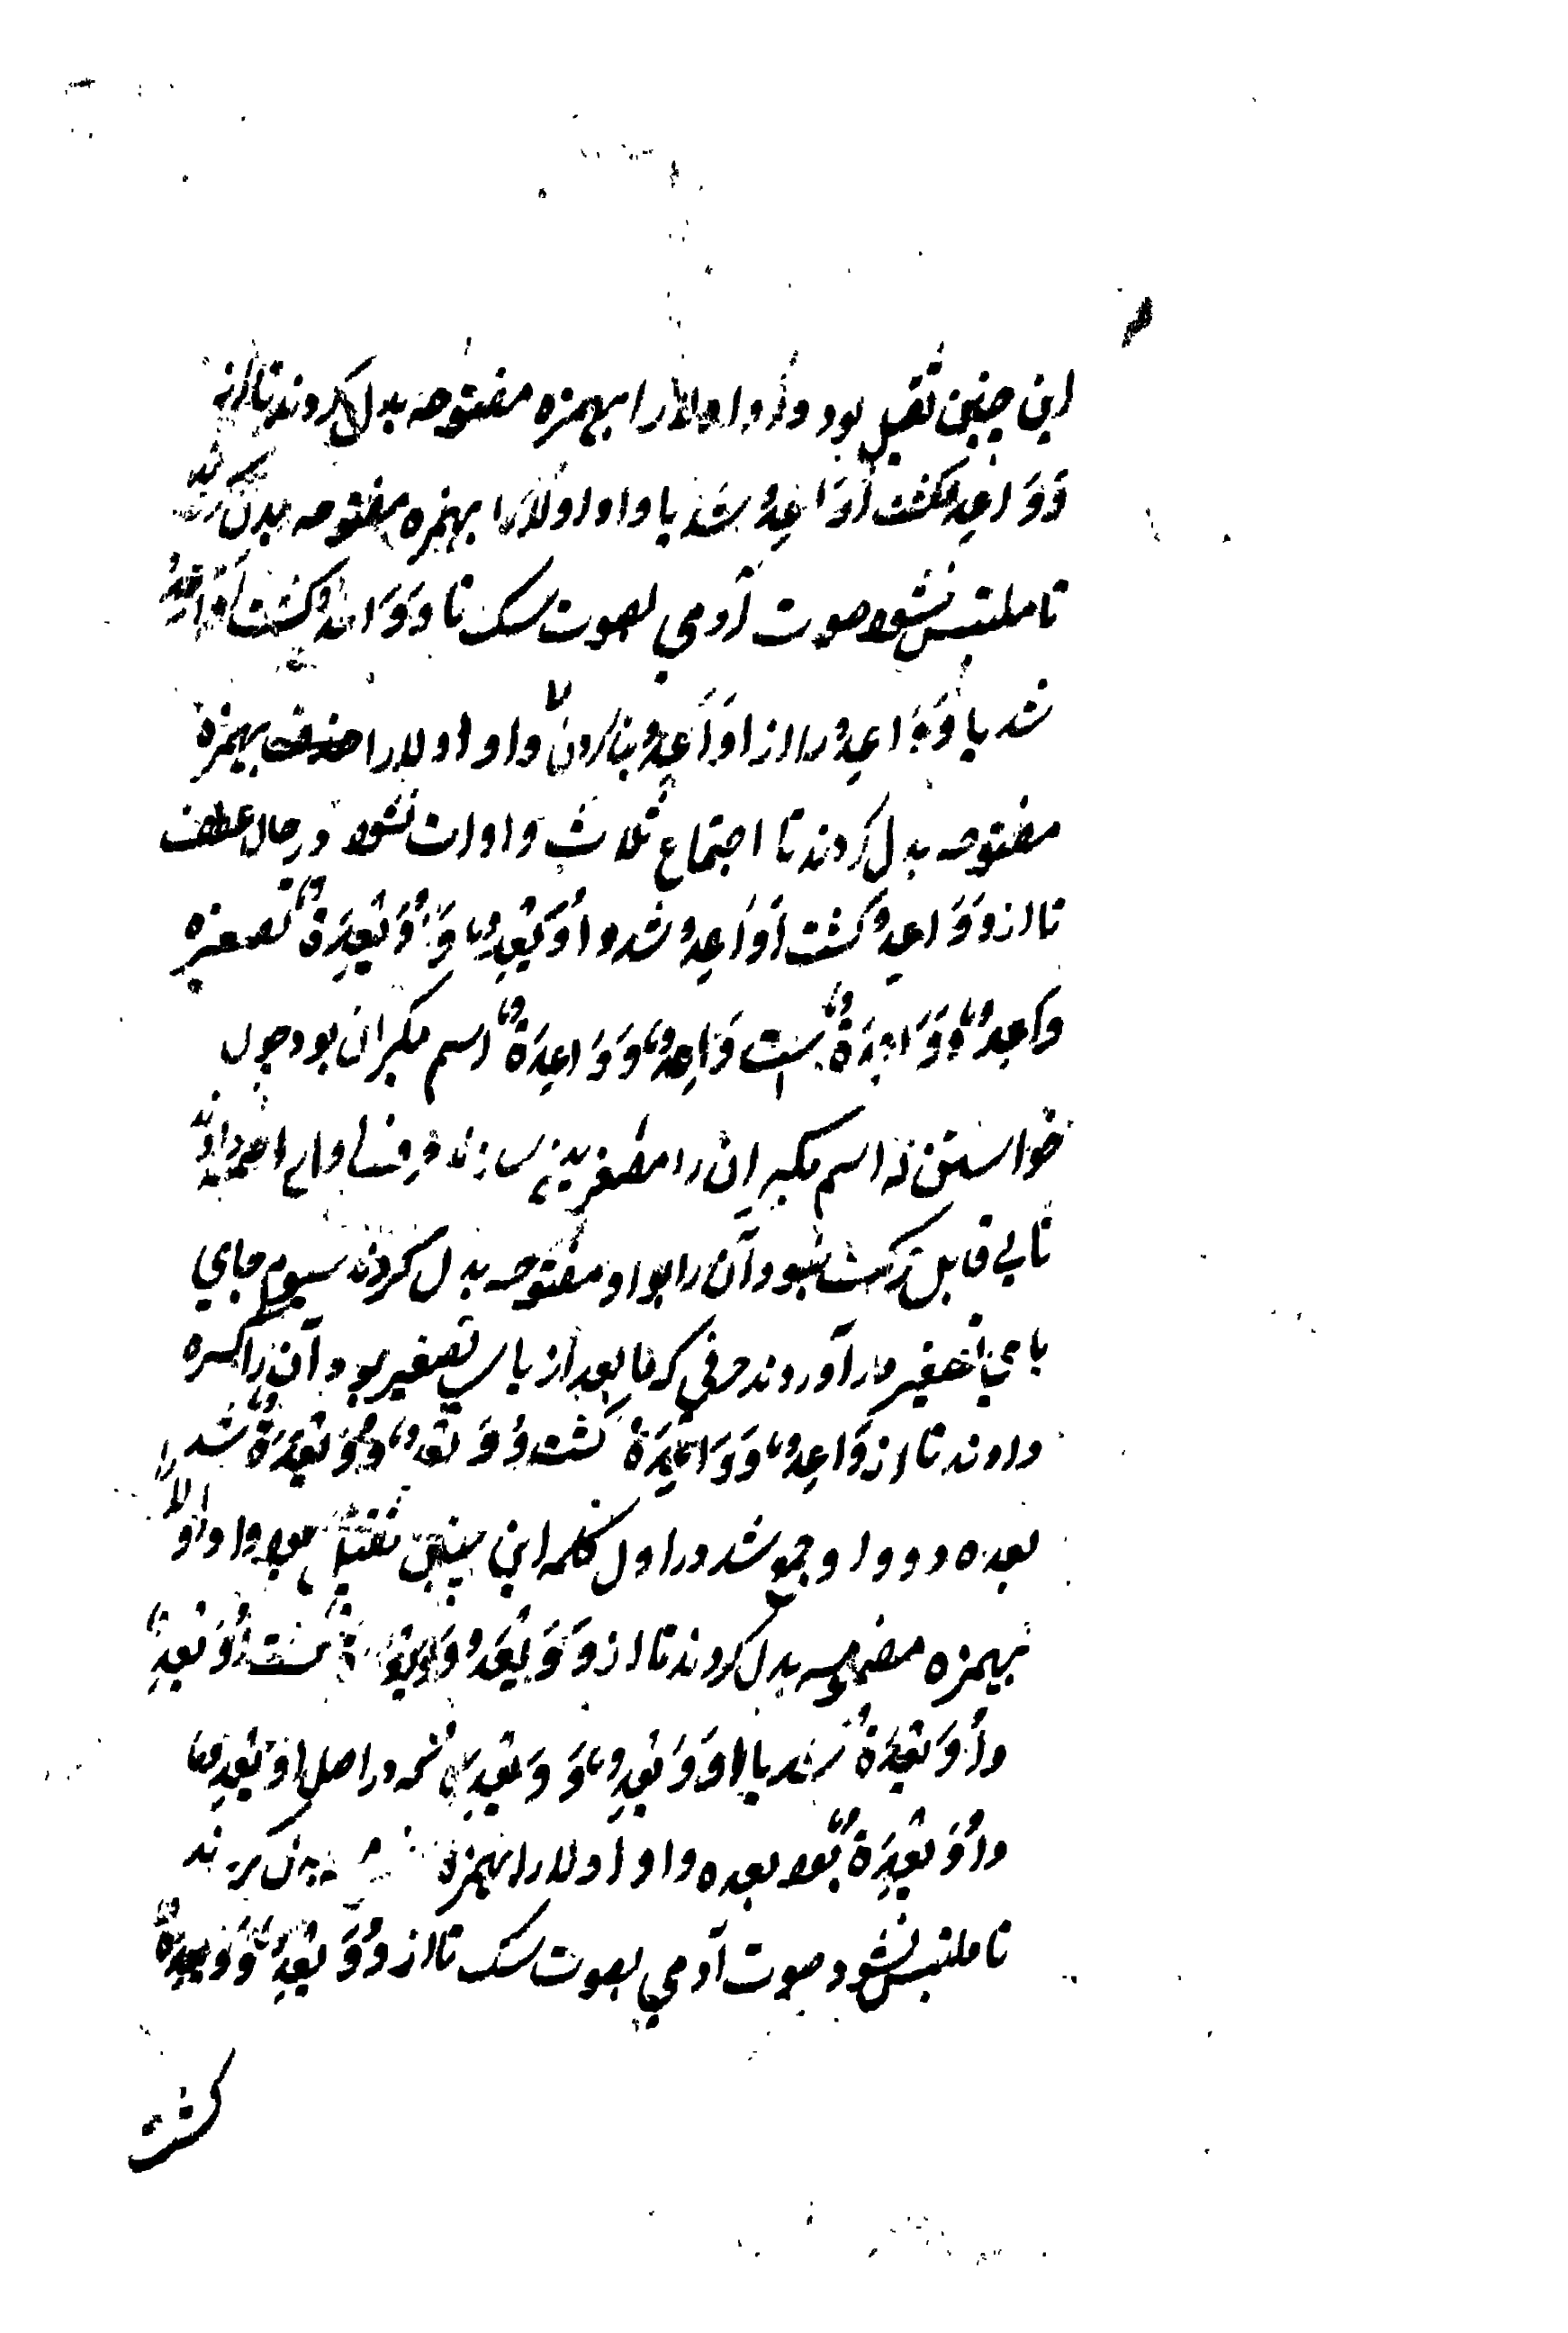 این چنین ثقیل بود واو اولا را بهمزه مفتوحه بدل کردند تا از
وَوَاعِدُ گشت اَوَاعِدُ شد یا واو اولا را بهمزه مفتوحه بدل کردند
تا ملتبس نشود صوت آدمی بصوت سک تا وَوَاعِدُ گشت اَوَاعِدُ
شد یا وَوَاعِدُ را از اَوَاعِدُ بنا کردن واو اولا را حذف بهمزه
مفتوحه بدل کردند تا اجتماع ثلاث واوات نشود در حال عطف
تا از وَوَاعِدُ گشت اَوَاعِدُ شد و اُوَیْعِدٌ وَ اُوَیْعِدَةٌ تصغیره
وَاعِدٌ وَوَاعِدَةٌ است وَاعِدٌ وَوَاعِدَةٌ اسم مکبران بود چون
خواستن که اسم مکبران را مصغر
ثانی قابل حرکت نبود آن را بواو مفتوحه بدل کردند سیوم جای
یای تصغیر در آوردند حرفی که ما بعد از یای تصغیر بود آن را کسره
دادند تا از وَاعِدٌ وَوَاعِدَةٌ گشت وُوَیْعِدٌ وَوُوَیْعِدَةٌ شد
بعده دو واو جمع شد در اول کلمه این چنین ثقیل بود واو اولا را
بهمزه مضمومه بدل کردند تا از وُوَیْعِدٌ گشت اُوَیْعِدٌ
واُوَیْعِدَةٌ شد یا وُوَیْعِدٌ وَ وُوَیْعِدَةٌ که در اصل اُوَیْعِدٌ
واُوَیْعِدَةٌ بود بعده واو اولا را بهمزه بدل کردند
تا ملتبس نشود صوت آدمی بصوت سک تا از وُوَیْعِدٌ وَوُوَیْعِدَةٌ
گشت